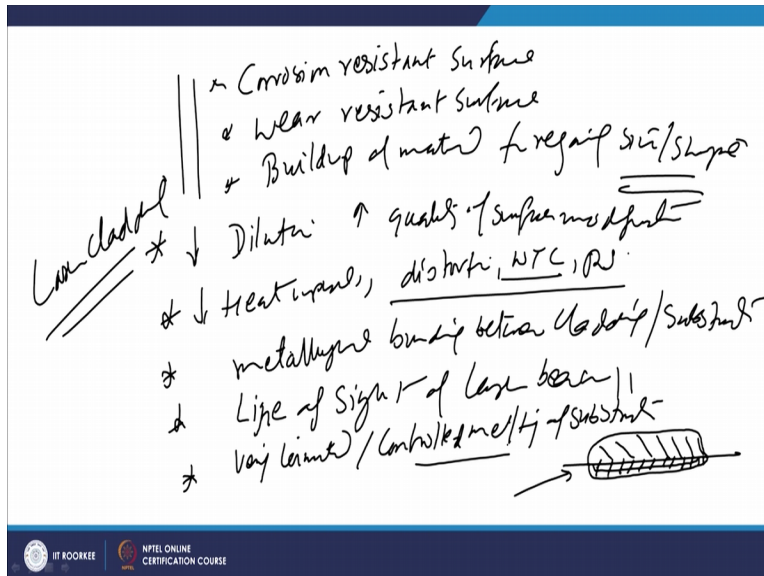 * Corrosion resistant surface
* Wear resistant surface
* Buildup of material for regaining size/shape
Laser cladding
* ↓ Dilution ↑ quality of surface modification
* ↓ Heat input, distortion, NTC, RS.
* metallurgical bonding between cladding/substrate
* Line of Sight of laser beam
* Very limited/controlled melting of substrate
IIT ROORKEE
NPTEL ONLINE
CERTIFICATION COURSE